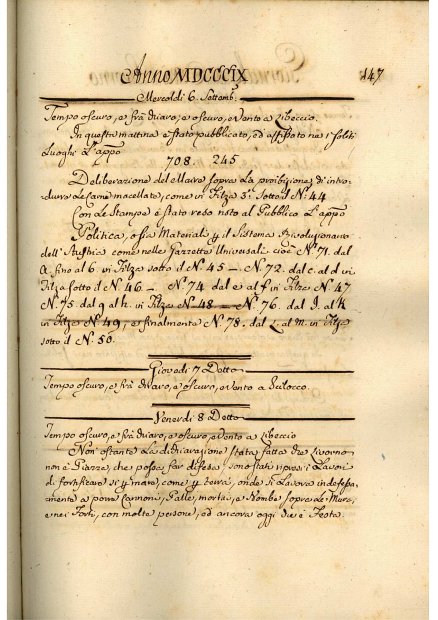 Anno MDCCCIX 147
Mercoldi 6. Settemb.
Tempo oscuro, e frà chiaro, e oscuro, e Vento a Libeccio.
In questa mattina è stato pubblicato, ed affissato ne i soliti
Luoghi L'appo
708. 245
Deliberazione del Maire sopra La proibizione di intro-
durre Le Carni macellate, come in Filza 3: Sotto il N.: 44
Con Le Stampe è stato reso noto al Pubblico L'appo
Politica, o sia Materiali p il Sistema Rivoluzionario
dell'Austria come nelle Gazzette Universali cioè N.: 71. dal
a. fino al b in Filza sotto il N. 45 — N.: 72. dal c. al d in
Filza sotto il N.: 46 — N.: 74 dal e al f in Filza N.: 47
N.: 75. dal g al h. in Filza N.: 48 — N.: 76. dal I. al K
in Filza N.: 49; e finalmente N.: 78. dal L. al m. in Filza
sotto il N.: 50.
Giovedi 7 Detto
Tempo oscuro, e frà chiaro, e oscuro, e Vento a Scilocco
Venerdi 8 Detto
Tempo oscuro, e frà chiaro, e oscuro, e Vento a Libeccio
Non' ostante La dichiarazione stata fatta che Livorno
non è Piazza, che possa far difesa, sono stati ripresi i Lavori
di fortificare si p mare, come p terra, onde si Lavora indefessa-
mente a porre Cannoni, Palle, mortai, e Bombe sopra Le Mura,
e nei Forti, con molte persone, ed ancora oggi che è Festa.